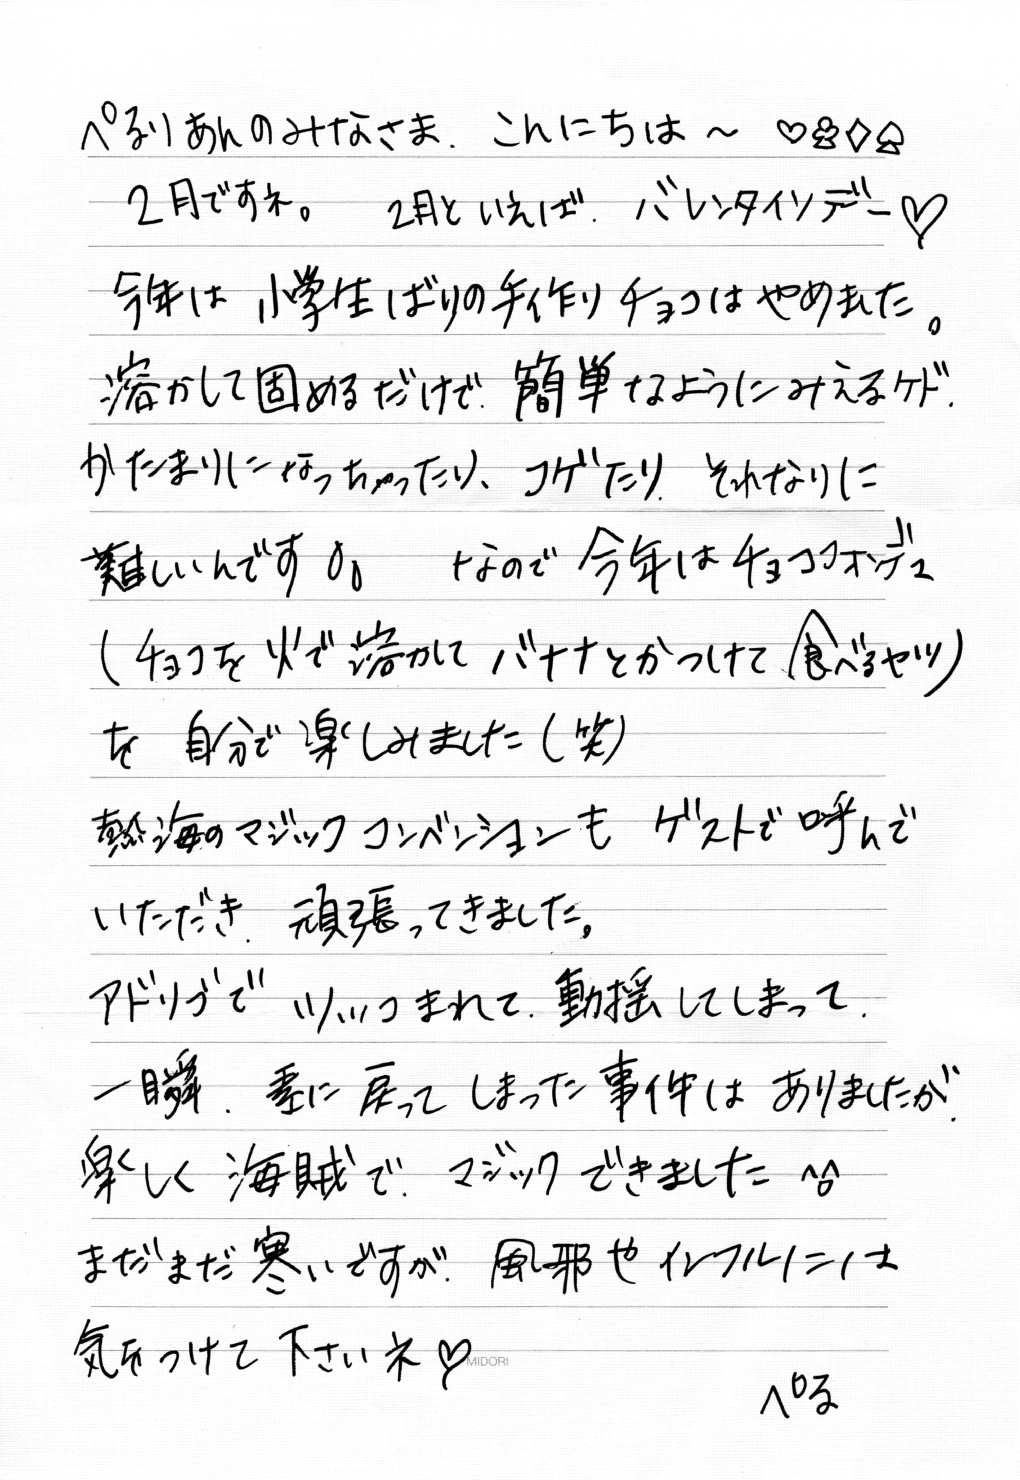 ぺるりあんのみなさま、こんにちは〜 ♡♧♢♤
2月ですネ。 2月といえば、バレンタインデー♡
今年は小学生ばりの手作りチョコはやめました。
溶かして固めるだけで、簡単なようにみえるケド、
かたまりになっちゃったり、コゲたり、それなりに
難しいんです なので今年はチョコフォンデュ
(チョコを火で溶かしてバナナとかつけて食べるヤツ)
を 自分で楽しみました(笑)
熱海のマジックコンベンションも ゲストで呼んで
いただき、頑張ってきました。
アドリブで ツッコまれて、動揺してしまって、
一瞬、素に戻ってしまった事件はありましたが、
楽しく海賊で、マジックできました ^^
まだまだ寒いですが、風邪やインフルノニハ
気をつけて下さいネ♡
MIDORI
ぺる